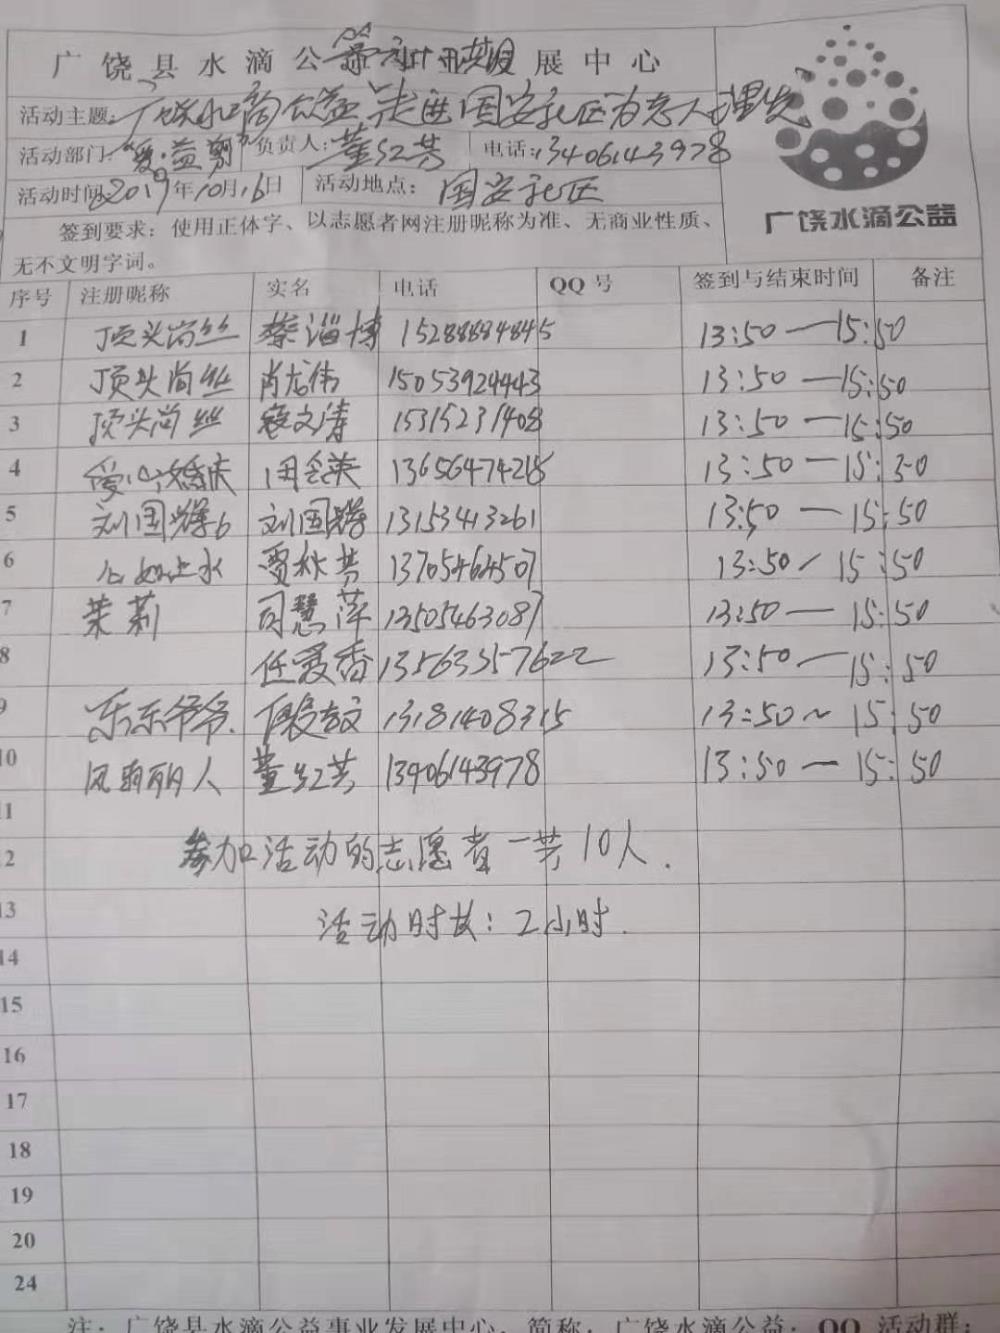 广饶县水滴公益事业发展中心
活动主题：广饶水滴公益走进国安社区为老人理发
活动部门："爱·益剪" 负责人：董红芳 电话：13406143978
活动时间：2019年10月16日 活动地点：国安社区
广饶水滴公益
签到要求：使用正体字、以志愿者网注册昵称为准、无商业性质、
无不文明字词。
序号 注册昵称 实名 电话 QQ号 签到与结束时间 备注
1 顶头尚丝 蔡淄博 15288884845 13:50—15:50
2 顶头尚丝 肖龙伟 15053924443 13:50—15:50
3 顶头尚丝 寇文涛 15315231408 13:50—15:50
4 爱心婚庆 周会英 13656474218 13:50—15:50
5 刘国辉6 刘国辉 13153413261 13:50—15:50
6 心如止水 贾秋芳 13705464507 13:50/15:50
7 茉莉 司慧萍 13505463087 13:50—15:50
8 任爱香 13563357622 13:50—15:50
9 东东爷爷. 13181408315 13:50~15:50
10 风雨丽人 董红芳 13406143978 13:50—15:50
11
12 参加活动的志愿者一共10人.
13 活动时长：2小时.
14
15
16
17
18
19
20
24
注：广饶县水滴公益事业发展中心，简称：广饶水滴公益；QQ 活动群：